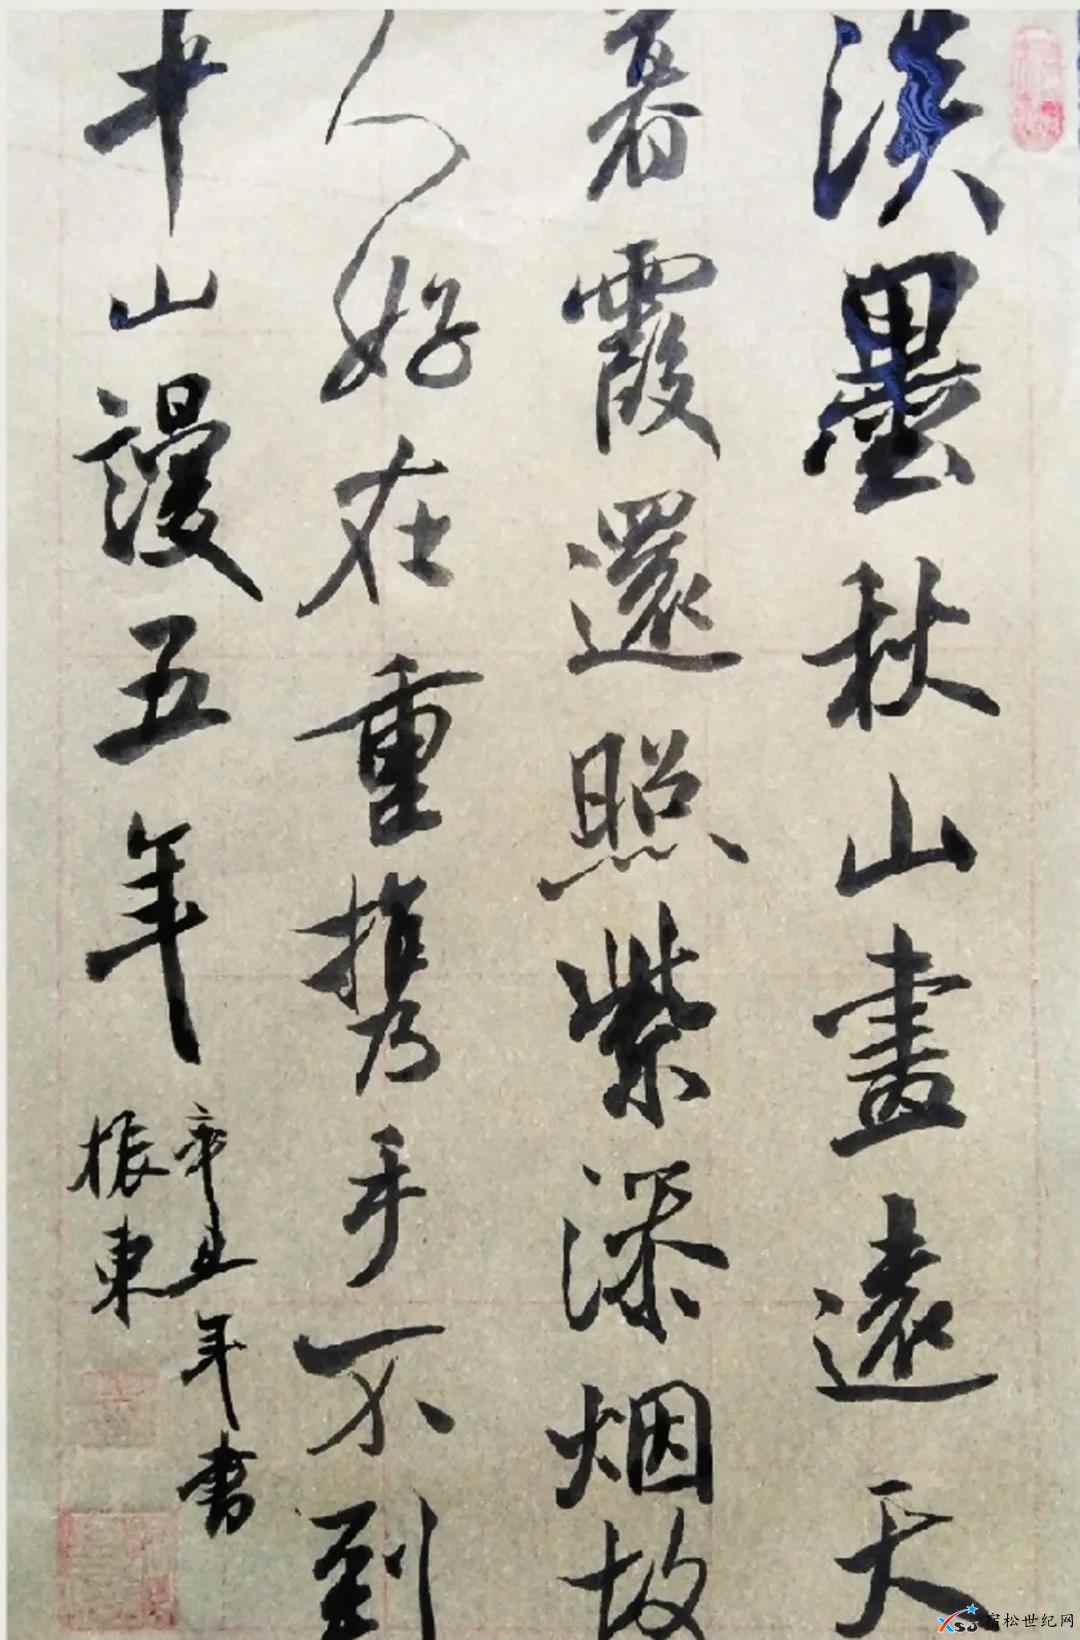 淡墨秋山畫遠天
暮霞還照紫添烟故
人好在重携手不到
平山謾五年
辛丑年書
振東
宿松世纪网